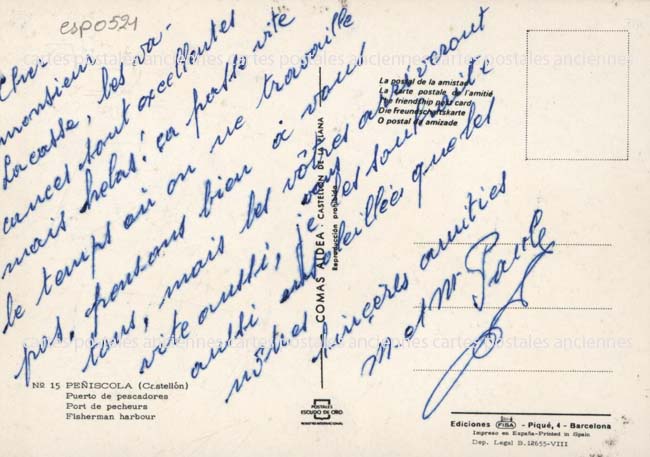 esp0521
Cher
monsieur
Lacasse, les va-
cances sont excellentes
mais hélas! ça passe vite
le temps où on ne travaille
pas, pensons bien à vous
tous, mais les vôtres arriveront
vite aussi, je vous les souhaite
aussi ensoleillées que les
nôtres
Sincères amitiés
M. et Mme Paule
La postal de la amistad
La carte postale de l'amitié
The friendship post card
Die Freundschaftskarte
O postal de amizade
COMAS ALDEA: CASTELLÓN DE LA PLANA
Reproducción prohibida
cartes postales anciennes cartes postales anciennes cartes postales anciennes
cartes postales anciennes cartes postales anciennes cartes postales anciennes
Nº 15 PEÑISCOLA (Castellón)
Puerto de pescadores
Port de pecheurs
Fisherman harbour
POSTALES
ESCUDO DE ORO
REGISTRO INTERNACIONAL
Ediciones FISA - Piqué, 4 - Barcelona
Impreso en España-Printed in Spain
Dep. Legal B. 12655-VIII